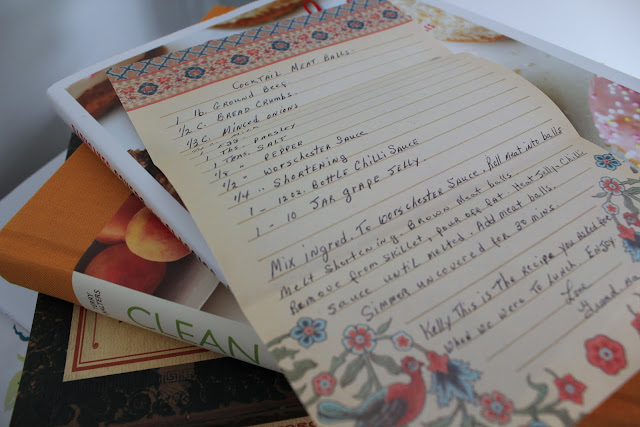 Cocktail Meat Balls.
1 lb. Ground Beef
1/2 C. Bread Crumbs.
1/3 C. Minced onions
1 Parsley
1 Teas. Salt
1/8 " Pepper
1/2 " Worschester Sauce
1/4 " Shortening
1 - 12oz. Bottle Chilli Sauce
1 - 10 Jar grape Jelly.
Mix ingred. To Worschester Sauce. Roll meat into balls
Melt Shortening. Brown Meat balls.
Remove from skillet, pour off fat. Heat Jelly & Chilli
Sauce until melted. Add meat balls.
Simmer uncovered for 30 mins.
Kelly This is The recipe you asked for
when we were To lunch. Enjoy
Love
CLEAN